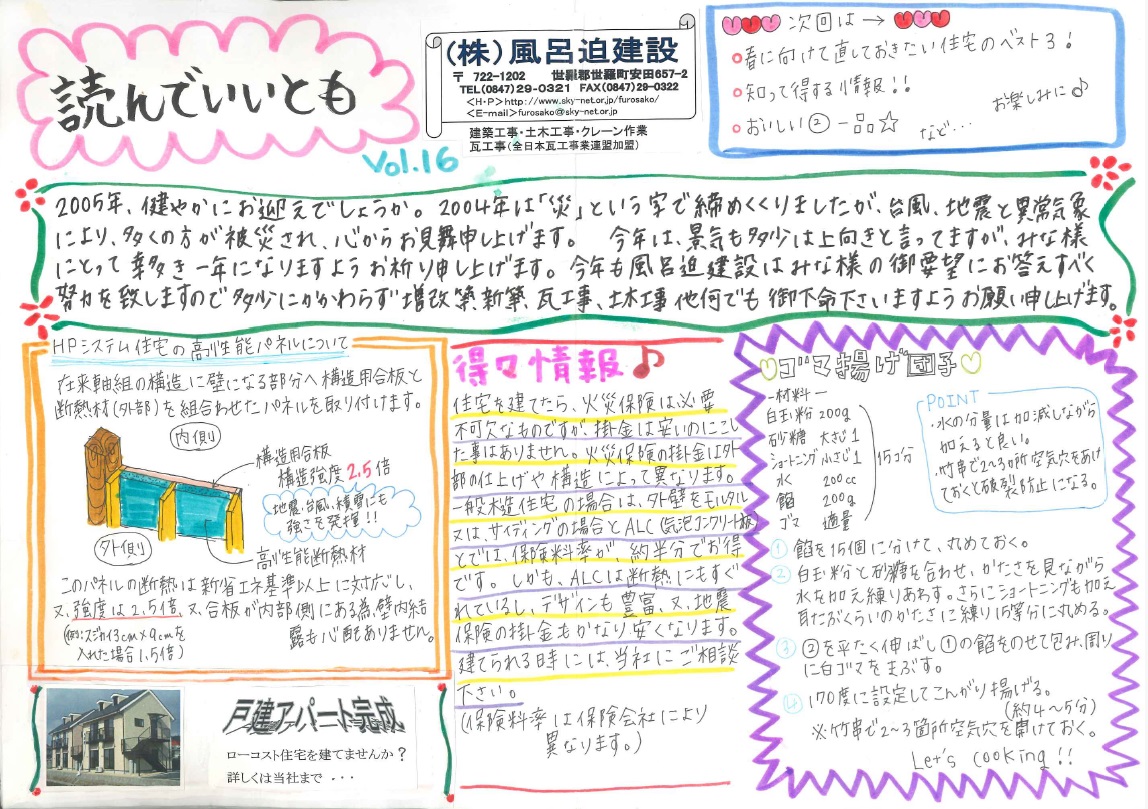 読んでいいとも
Vol.16
(株)風呂迫建設
〒 722-1202 世羅郡世羅町安田657-2
TEL(0847)29-0321 FAX(0847)29-0322
<H・P>http://www.sky-net.or.jp/furosako/
<E-mail>furosako@sky-net.or.jp
建築工事・土木工事・クレーン作業
瓦工事(全日本瓦工事業連盟加盟)
次回は→
春に向けて直しておきたい住宅のベスト3!
知って得する情報!!
お楽しみに♪
おいしい②一品☆
など…
2005年、健やかにお迎えでしょうか。2004年は「災」という字で締めくくりましたが、台風、地震と異常気象
により、多くの方が被災され、心からお見舞申し上げます。 今年は、景気も多少は上向きと言ってますが、みな様
にとって幸多き一年になりますようお祈り申し上げます。今年も風呂迫建設はみな様の御要望にお答えすべく
努力を致しますので多少にかかわらず増改築、新築、瓦工事、土木工事他何でも御下命下さいますようお願い申し上げます。
HPシステム住宅の高性能パネルについて
在来軸組の構造に壁になる部分へ構造用合板と
断熱材(外部)を組合わせたパネルを取り付けます。
内側
構造用合板
構造強度2.5倍
地震、台風、積雪にも
強さを発揮!!
外側
高性能断熱材
このパネルの断熱は新省エネ基準以上に対応し、
又、強度は2.5倍、又、合板が内部側にある為、壁内結
露も心配ありません。
(例:スジカイ3cm×9cmを
入れた場合1.5倍)
戸建アパート完成
ローコスト住宅を建てませんか?
詳しくは当社まで・・・
得々情報♪
住宅を建てたら、火災保険は必要
不可欠なものですが、掛金は安いのにこし
た事はありません。火災保険の掛金は外
部の仕上げや構造によって異なります。
一般木造住宅の場合は、外壁をモルタル
又は、サイディングの場合とALC(気泡コンクリート板)
とでは、保険料率が、約半分でお得
です。しかも、ALCは断熱にもすぐ
れているし、デザインも豊富、又、地震
保険の掛金もかなり安くなります。
建てられる時には、当社にご相談
下さい。
(保険料率は保険会社により
異なります。)
ゴマ揚げ団子
-材料-
白玉粉 200g
砂糖 大さじ1
ショートニング 小さじ1
水 200cc
餡 200g
ゴマ 適量
15コ分
POINT
・水の分量は加減しながら
加えると良い。
・竹串で2~3箇所空気穴をあけ
ておくと破裂防止になる。
① 餡を15個に分けて、丸めておく。
② 白玉粉と砂糖を合わせ、かたさを見ながら
水を加え練りあわす。さらにショートニングも加え
耳たぶくらいのかたさに練り15等分に丸める。
③ ②を平たく伸ばし①の餡をのせて包み、周り
に白ゴマをまぶす。
④ 170度に設定してこんがり揚げる。
(約4~5分)
※竹串で2~3箇所空気穴を開けておく。
Let's cooking!!